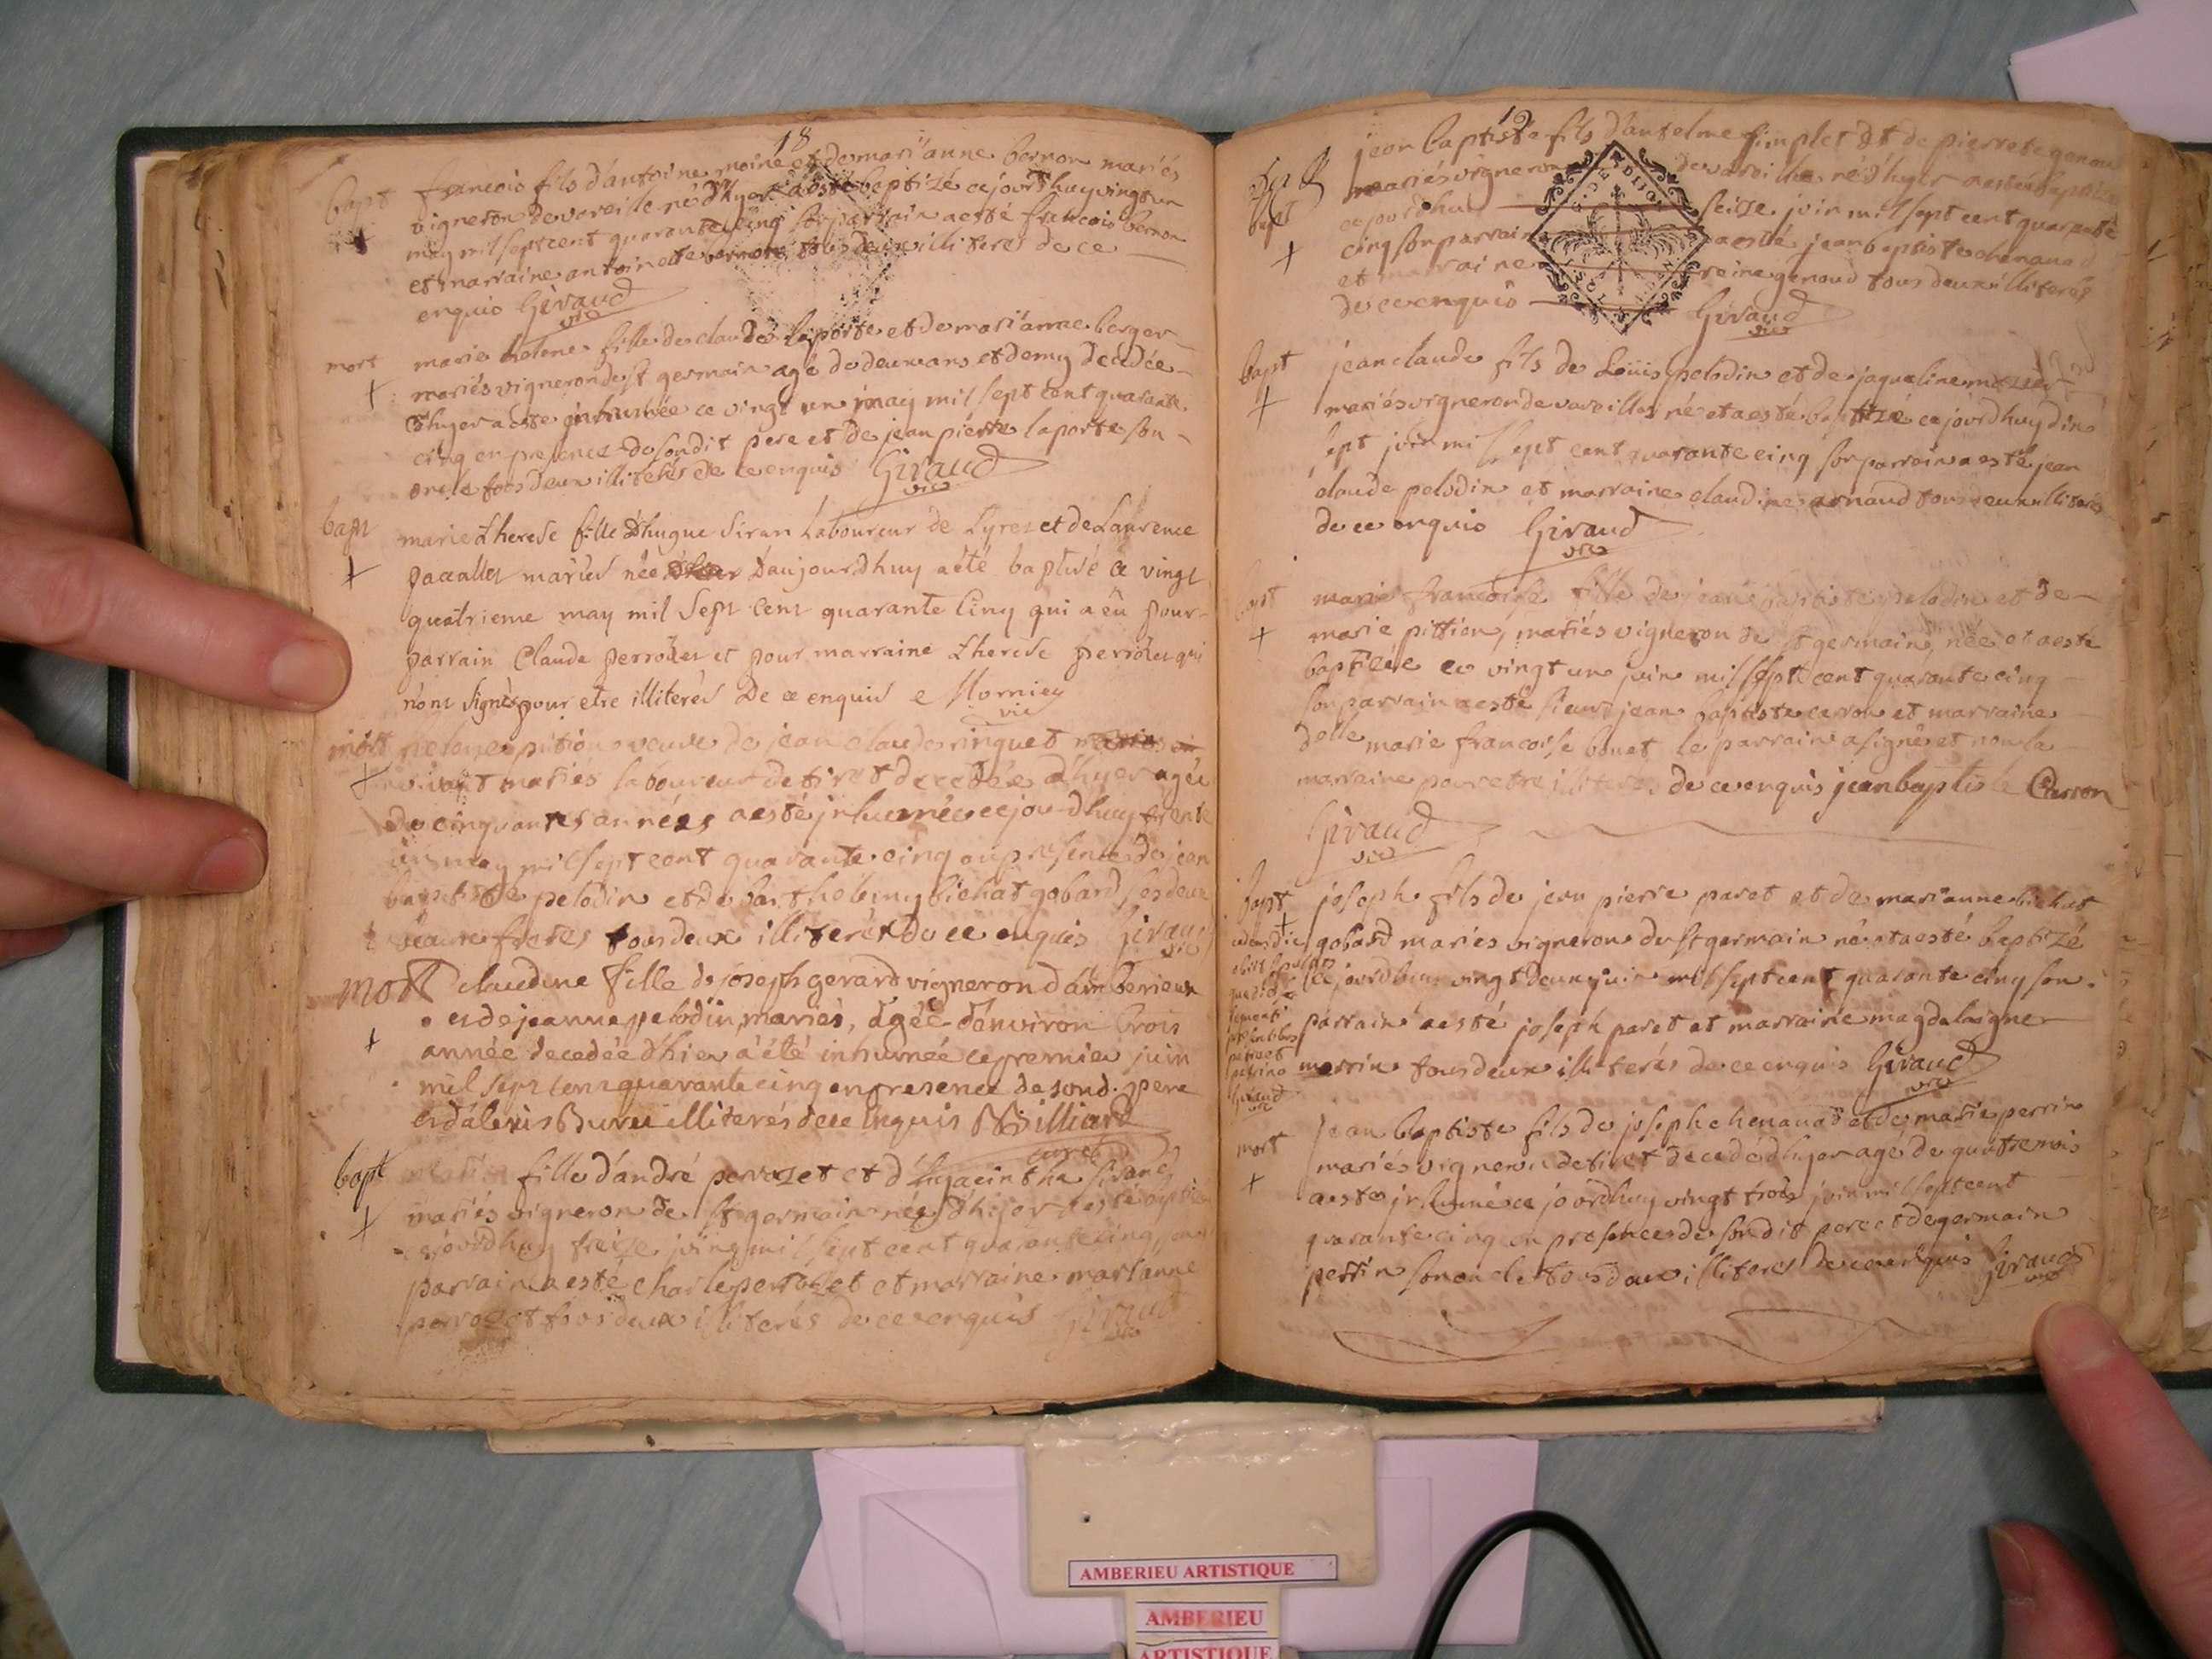 18
bapt francois fils d'antoine moine et de mari'anne bernon mariés
vigneron devareille né d'hyer aesté baptizé cejourd'huy vingt un
may mil sept cent quarante cinq son parrain aesté francois bernon
et marraine antoinette tous deux illiteres de ce
enquis Giraud
vic
mort marie helene fille de claude laporte et de mari'anne berger
mariés vigneron de st germain agé de deux ans et demy decedée
d'hyer aeste inhumée ce vingt un may mil sept cent quarante
cinq en presence de sondit pere et de jean pierre laporte son
oncle tous deux illiterés de ce enquis Giraud
vic
bapt marie Therese fille d'hugue Siran Laboureur de Tyret et de Laurence
mariés née d'aujourdhuy a été batisé ce vingt
quatrieme may mil Sept Cent quarante Cinq qui a eû pour
parrain Claude perrozet et pour marraine Therese perrozet qui
n'ont signé pour etre illiterés De ce enquis
vic
mort helene pition veuve de jean claude ringuet
vivant mariés laboureur de tiret decedée d'hyer agée
de cinquantes années aesté inhumée cejourd'huy trente
un may mil sept cent quarante cinq en presence de jean
baptiste pelodin et de barthelemy bichat gobard ses deux
beaux freres tous deux illiterés de ce enquis Giraud
vic
mort claudine fille de joseph gerard vigneron d'amberieux
et de jeanne pelodin, mariés, agée d'environ trois
année decedée d'hier a été inhumée ce premier juin
mil sept cent quarante cinq en presence de sond. pere
et d'alexis Buret illiterés de ce enquis Billiard
curé
bapt fille d'andré perrozet et d'hyacinthe Sirand
mariés vigneron de st germain née d'hijer aesté baptizée
cejourdhuy treize juin mil sept cent quarante cinq son
parrain a esté charle perrozet et marraine marianne
perrozet tous deux illiterés de ce enquis Giraud
vic
19
jean baptiste fils d'antelme simplet et de pierrete genou
bapt mariés vigneron devareilhe né d'hyer aesté baptizé
cejourdhui seize juin mil sept cent quarante
cinq son parrain aesté jean baptiste chenavad
et marraine reine genoud tous deux illiterés
de ce enquis Giraud
vic
bapt jean claude fils de Loüis pelodin et de jaqueline
mariés vigneron de vareilles né et aesté baptizé cejourd'huy dix
sept juin mil sept cent quarante cinq son parrain aesté jean
claude pelodin et marraine claudine arnaud tous deux illiterés
de ce enquis Giraud
vic
bapt marie francoise fille de jean baptiste pelodin et de
marie pittion, mariés vigneron de st germain, née et aesté
baptizée ce vingt un juin mil sept cent quarante cinq
son parrain aesté sieur jean baptiste carron et marraine
delle marie francoise bouet le parrain a signé et non la
marraine pour etre illiteres de ce enquis jean baptiste Carron
Giraud
vic
bapt joseph fils de jean pierre paret et de mari'anne bichat
gobard mariés vigneron de st germain né et aesté baptizé
cejourdhuy vingt deux juin mil sept cent quarante cinq son
parrain aesté joseph paret et marraine magdelaigne
merrin tous deux illiterés de ce enquis Giraud
vic
eadem die
obiit
presentibus
patre et
patrino
Giraud
vic
mort Jean baptiste fils de joseph chenavad et de marie perrin
mariés vigneron de tiret decedé d'hyer agé de quatre mois
aeste inhumé ce jourdhuy vingt trois juin mil sept cent
quarante cinq en presence de sondit pere et de germain
perrin son oncle tous deux illiteres de ce enquis Giraud
vic
AMBERIEU ARTISTIQUE
AMBERIEU
ARTISTIQUE